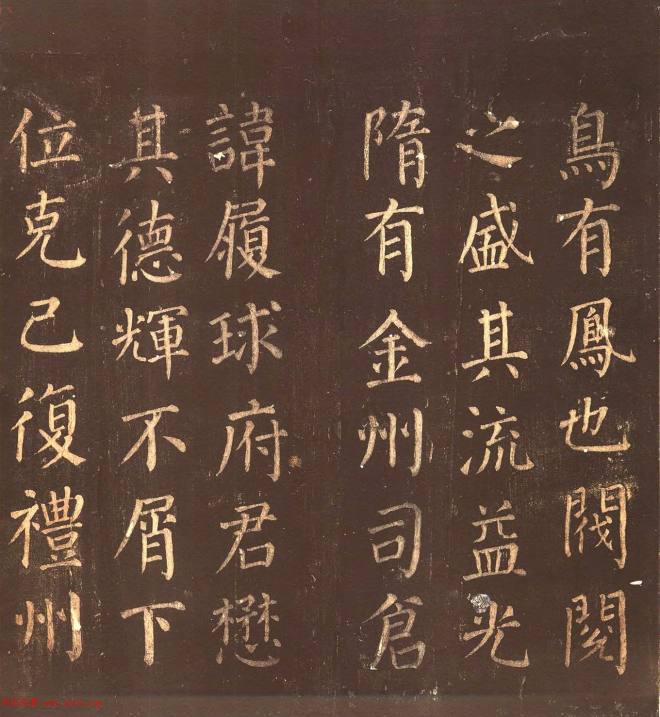 鳥有鳳也閥閱
之盛其流益光
隋有金州司倉
諱履球府君懋
其德輝不屑下
位克己復禮州